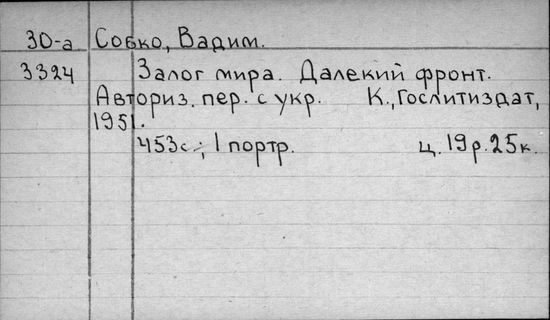 30-а Собко, Вадим.
3324 Залог мира. Далекий фронт.
Авториз. пер. с укр. К., Гослитиздат,
1951.
453с.; 1 портр. ц. 19р. 25к.